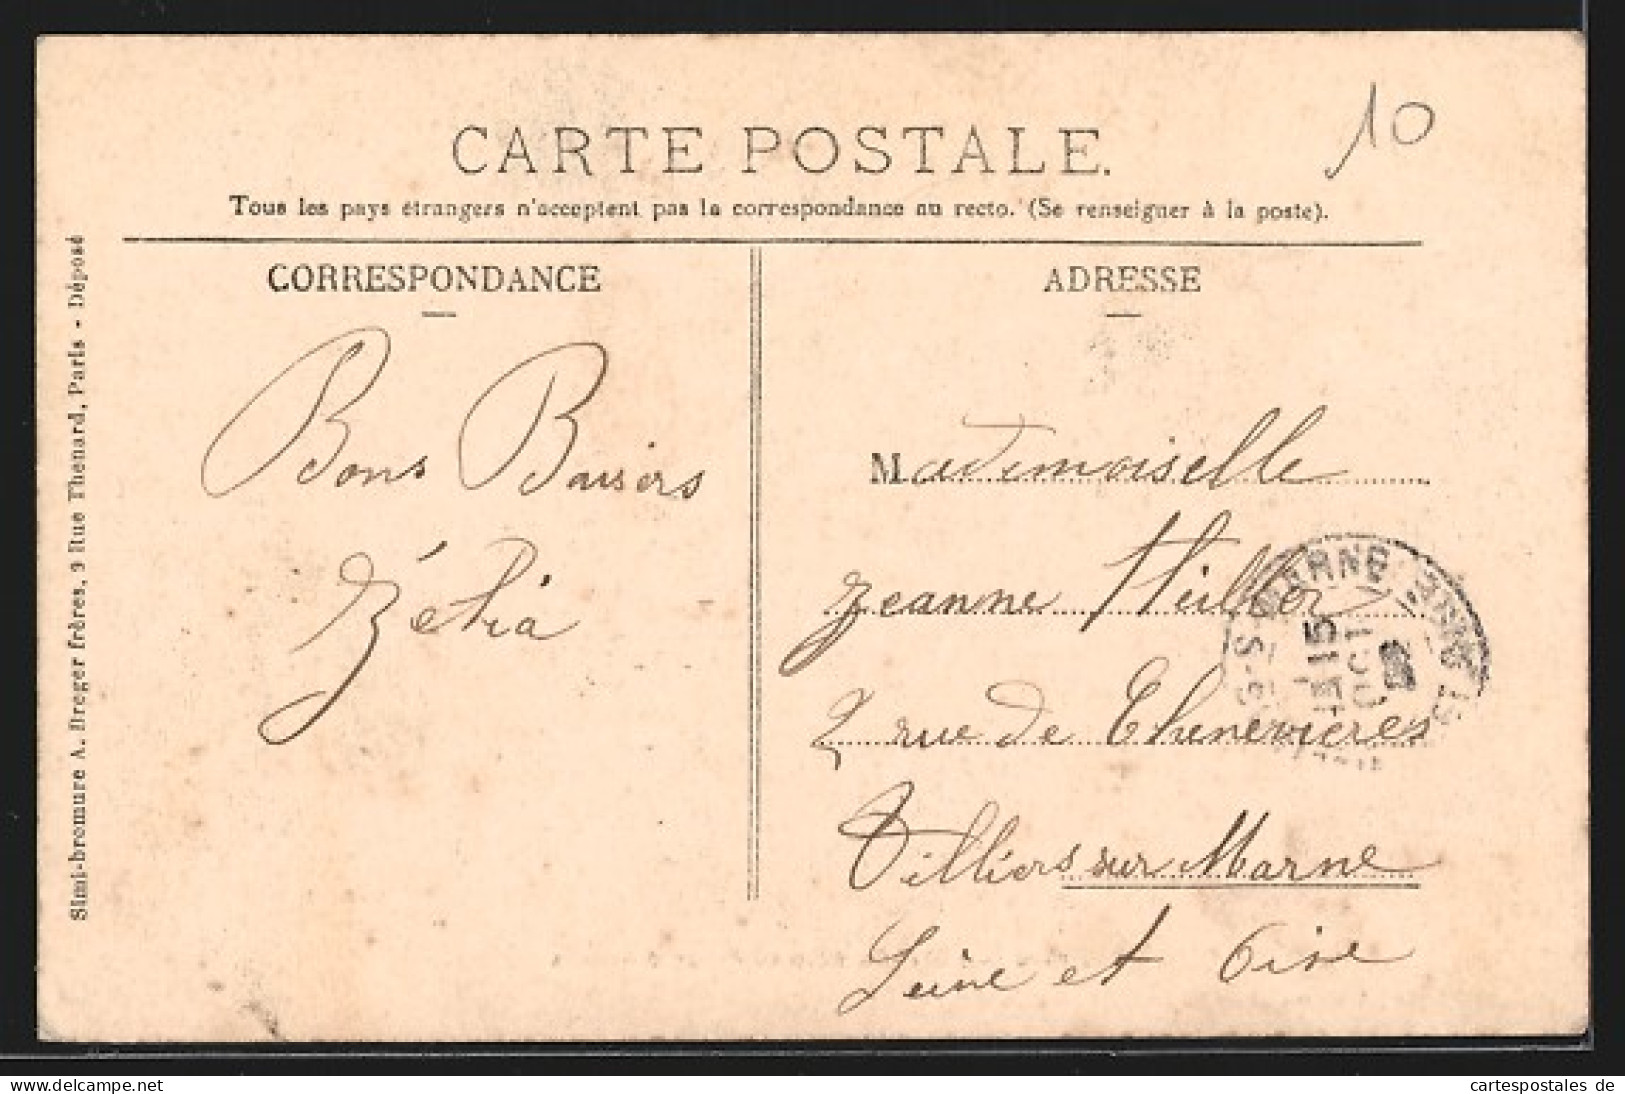 10
CARTE POSTALE.
Tous les pays étrangers n'acceptent pas la correspondance au recto. (Se renseigner à la poste).
CORRESPONDANCE
Bons Baisers
Zélia
ADRESSE
Mademoiselle
Jeanne
2 rue de Chenevieres
Villiers sur Marne
Seine et Oise
MARNE
15
OCT
Simi-bromure A. Breger frères, 9 Rue Thenard, Paris - Déposé
www.delcampe.net
cartespostales de